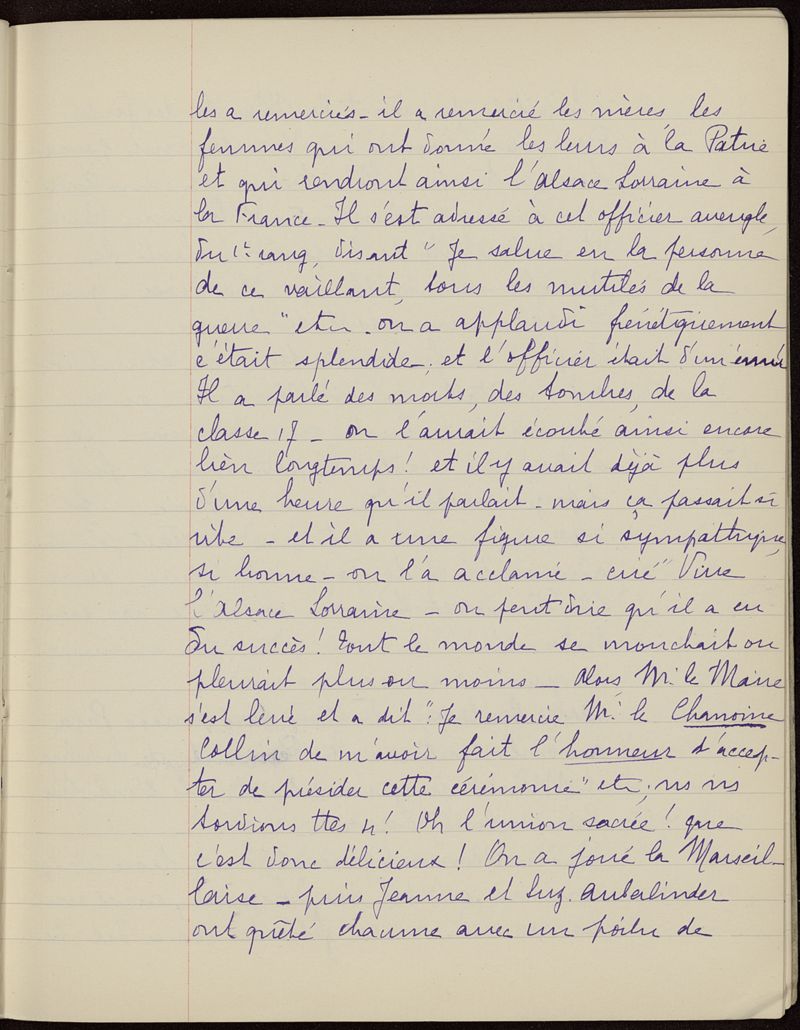 les a remerciés - il a remercié les mères les
femmes qui ont donné les leurs à la Patrie
et qui rendront ainsi l'Alsace Lorraine à
la France - Il s'est adressé à cet officier aveugle,
du 1er rang, disant " Je salue en la personne
de ce vaillant, tous les mutilés de la
guerre " etc - on a applaudi frénétiquement
c'était splendide, et l'officier était d'un ému
Il a parlé des morts, des tombes, de la
classe 17 - on l'aurait écouté ainsi encore
bien longtemps ! et il y avait déjà plus
d'une heure qu'il parlait - mais ça passait si
vite - et il a une figure si sympathique,
si bonne - on l'a acclamé - crié " Vive
l'Alsace Lorraine - on peut dire qu'il a eu
du succès ! tout le monde se mouchait ou
pleurait plus ou moins - Alors Mr. le Maire
s'est levé et a dit " Je remercie Mr. le Chanoine
Collin de m'avoir fait l'honneur d'accep-
ter de présider cette cérémonie " etc, ns ns
tordions ttes 4 ! Oh l'union sacrée ! que
c'est donc délicieux ! On a joué la Marseil-
laise - puis Jeanne et Suz. Aubalinder
ont quêté chacune avec un poilu de